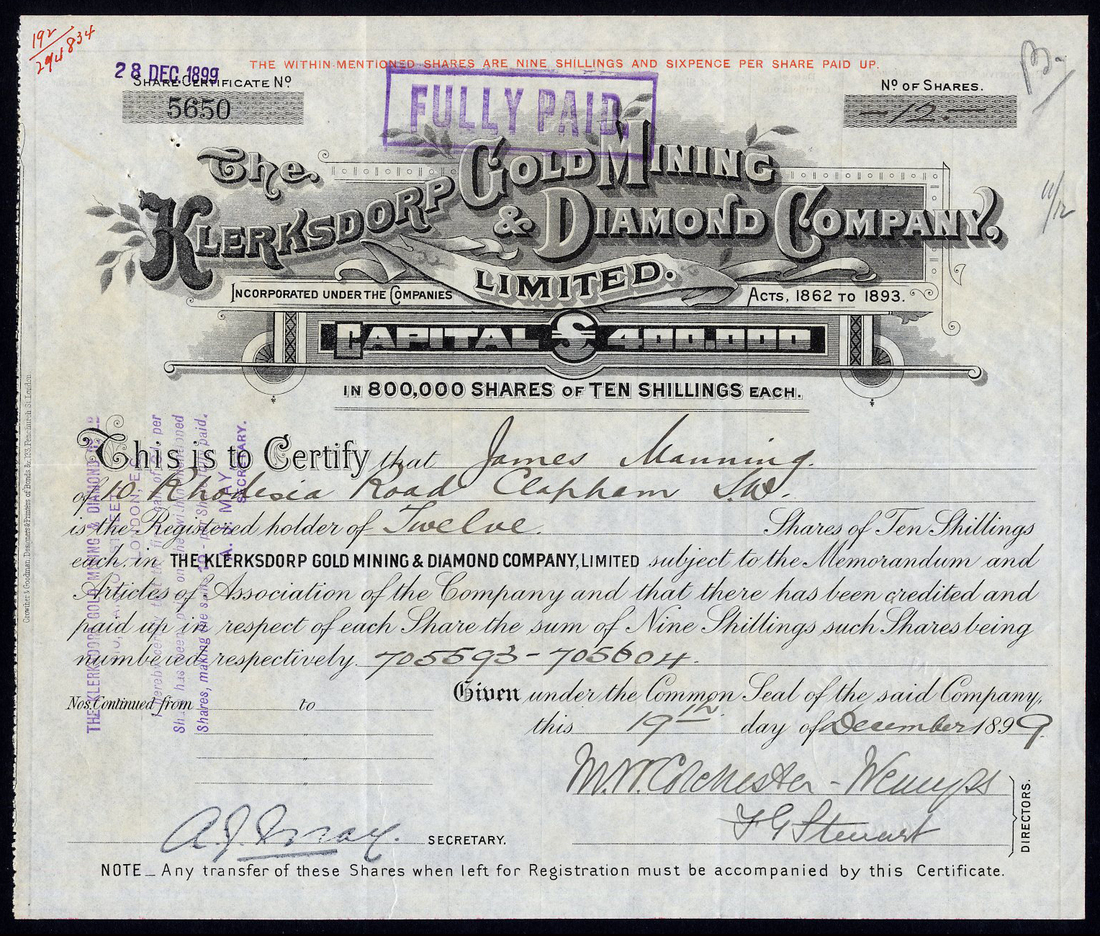 192
294834
28 DEC. 1899
THE WITHIN-MENTIONED SHARES ARE NINE SHILLINGS AND SIXPENCE PER SHARE PAID UP.
SHARE CERTIFICATE No.
5650
FULLY PAID.
No OF SHARES.
-12-
11/12
The
KLERKSDORP GOLD MINING
& DIAMOND COMPANY,
LIMITED.
INCORPORATED UNDER THE COMPANIES ACTS, 1862 TO 1893.
CAPITAL £400,000
IN 800,000 SHARES OF TEN SHILLINGS EACH.
This is to Certify that James Manning.
of 10 Rhodesia Road Clapham S.W.
is the Registered holder of Twelve. Shares of Ten Shillings
each in THE KLERKSDORP GOLD MINING & DIAMOND COMPANY, LIMITED subject to the Memorandum and
Articles of Association of the Company and that there has been credited and
paid up in respect of each Share the sum of Nine Shillings such Shares being
numbered respectively 705593-705604.
Given under the Common Seal of the said Company,
Nos. Continued from to
this 19th day of December 1899.
M.W. Colchester-Wemyss
F G Stewart
DIRECTORS.
A. J. May. SECRETARY.
NOTE_ Any transfer of these Shares when left for Registration must be accompanied by this Certificate.
THE KLERKSDORP GOLD MINING & DIAMOND
LONDON, E.C.
per
Share has been paid on the within mentioned
Shares, making the
per Share paid.
MAY
SECRETARY.